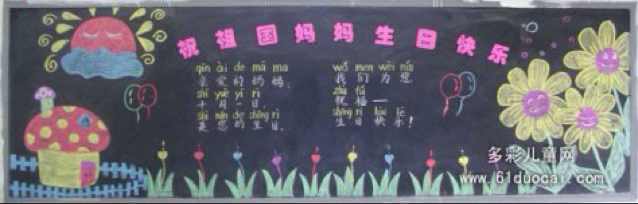 祝祖国妈妈生日快乐
qīn ài de mā ma
亲爱的妈妈，
shí yuè yī rì
十月一日，
shì nín de shēng rì
是您的生日。
wǒ men wèi nín
我们为您
zhù fú
祝福——
shēng rì kuài lè
生日快乐！
多彩儿童网
www.61duocai.com